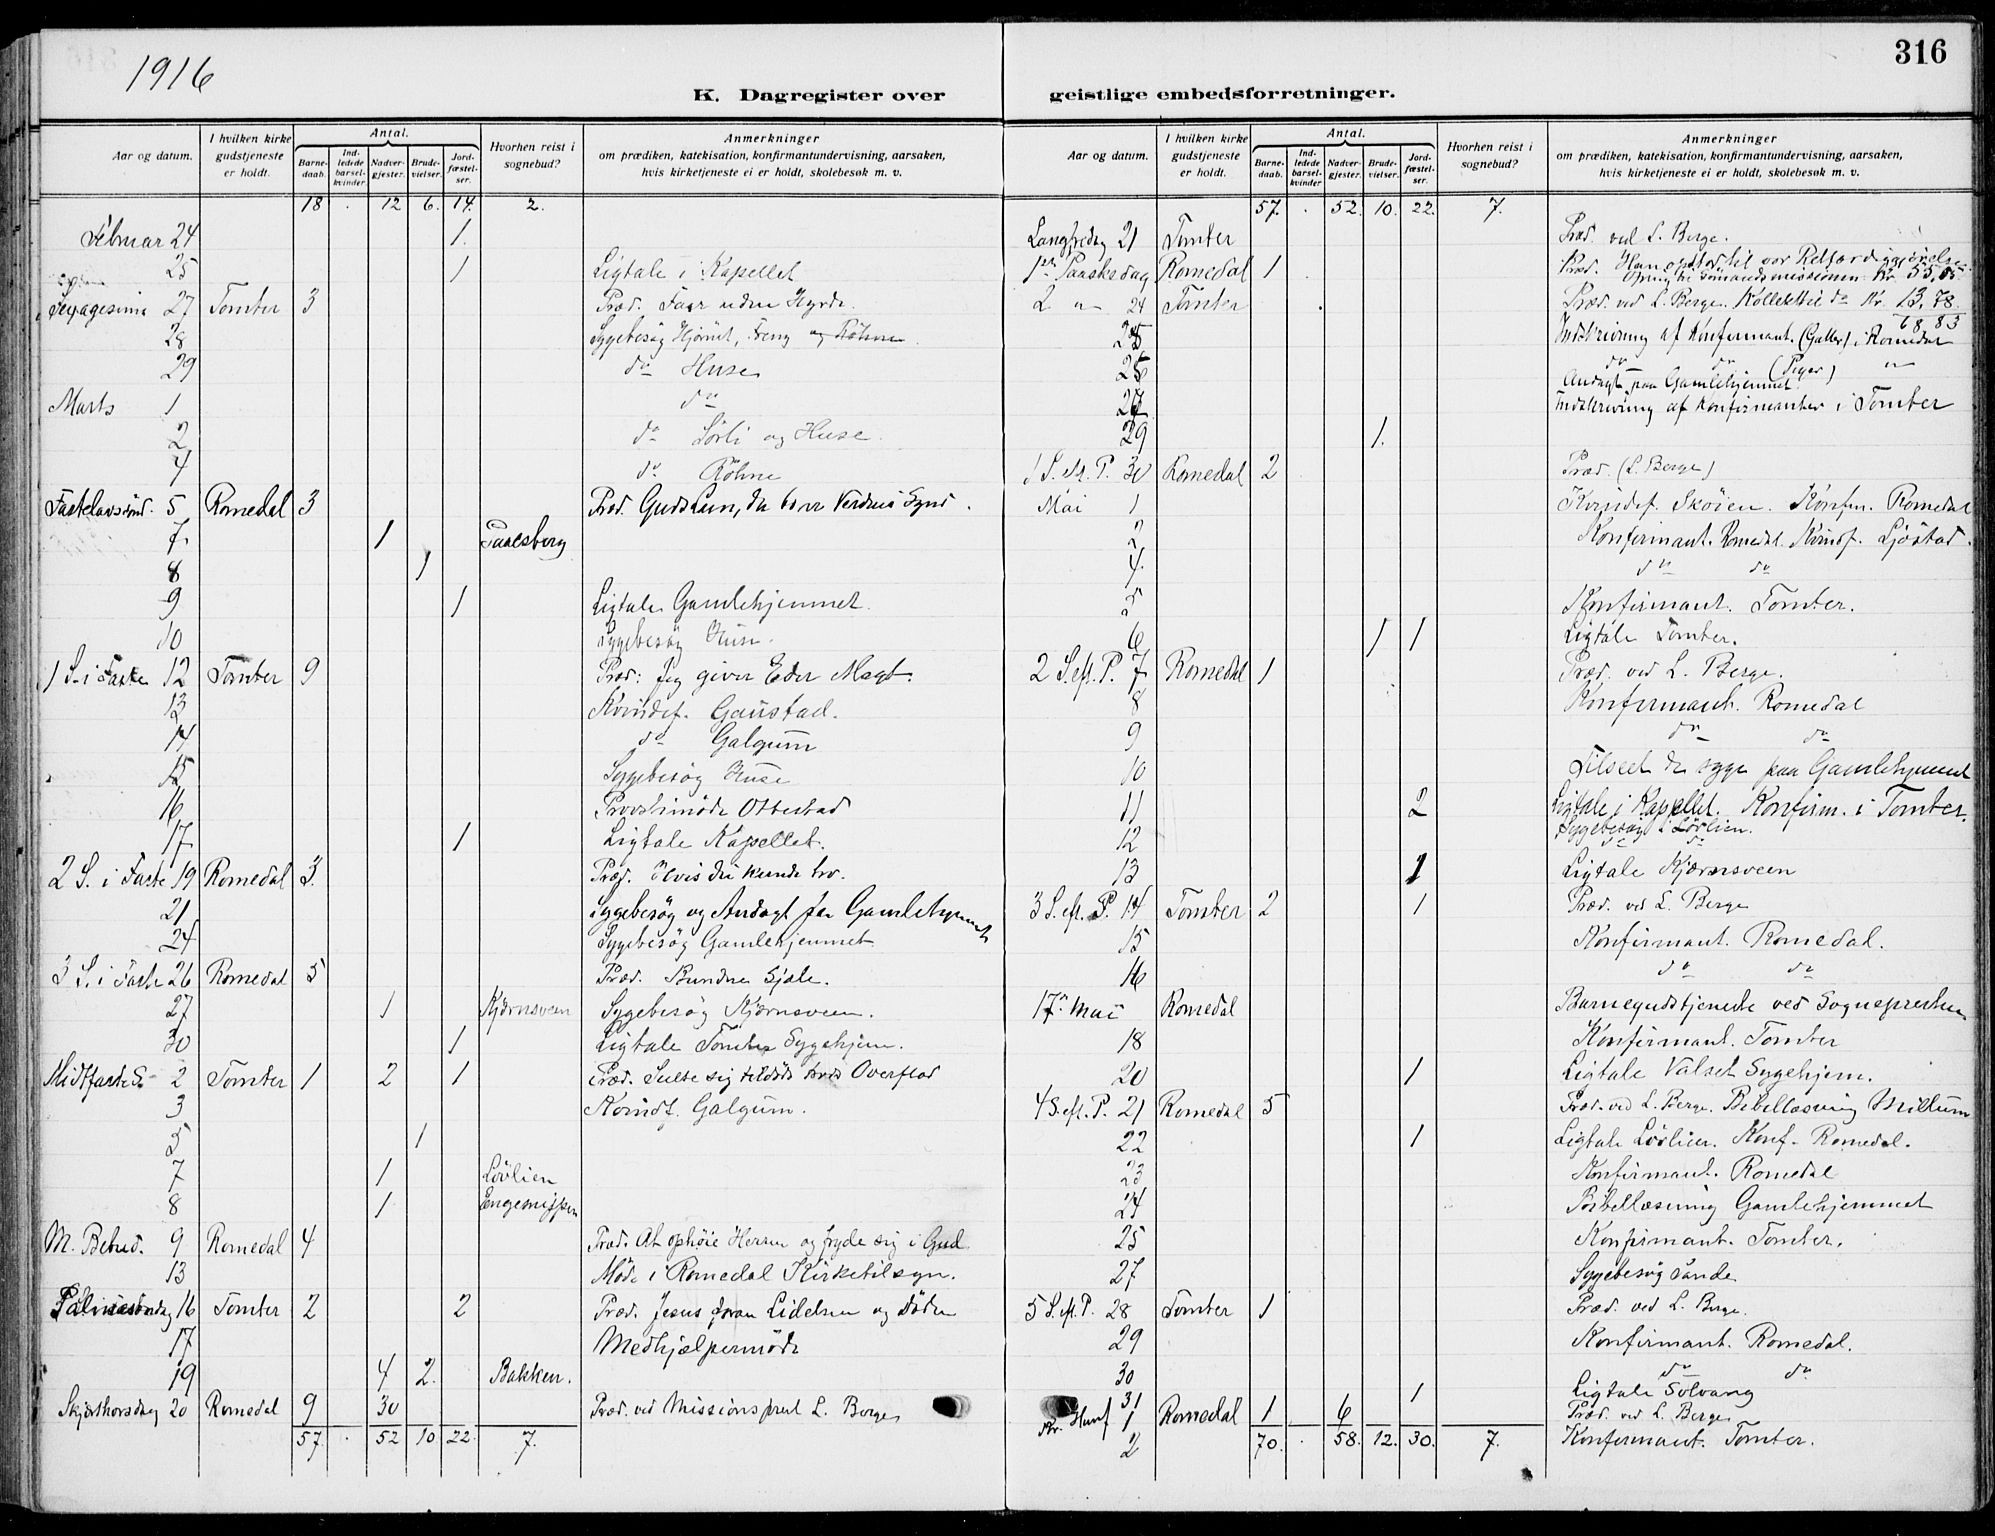 1916
K. Dagregister over
Aar og datum. I hvilken kirke gudstjeneste er holdt. Antal. Barnedaab. Indledede barselkvinder Nadvergjester. Brudevielser. Jordfæstelser. Hvorhen reist i sognebud? Anmerkninger om prædiken, katekisation, konfirmantundervisning, aarsaken, hvis kirketjeneste ei er holdt, skolebesøk m. v.
18 . 12 6. 14. 2.
Februar 24 1.
25 1 Ligtale i Kapellet
Sexagesima 27 Tomter 3 Præd. Faar uden Hyrde.
28 Sygebesøg Hjørnet, Feng og Röhne
29 do Huse
Marts 1 do
2 do Sörli og Huse.
4 do Röhne
Fastelavssönd. 5 Romedal 3 Præd. Guds Lam, da bærer Verdens Synd.
7 1 Paalsberg
8 1
9 1 Ligtale Gamlehjemmet.
10 Sygebesög Huse.
1 S. i Faste 12 Tomter 9 Præd: Jeg giver Eder Magt.
13 Kvindef. Gaustad.
14 do Galgum
15 Sygebesög Huse
16 Provstimöde Ottestad
17 1 Ligtale Kapellet.
2 S. i Faste 19 Romedal 3. Præd. Hvis du kunde tro.
21 Sygebesög og Andagt paa Gamlehjemmet
24 Sygebesög Gamlehjemmet
3 S. i Faste 26 Romedal 5 Præd. Bundne Sjæle.
27 1 Kjernsveen Sygebesög Kjernsveen.
30 1 Ligtale Tomter Sygehjem.
Midtfaste S. 2 Tomter 1 2 1 Præd. Sulte sig tildöds trods Overflod
3 Kvindf. Galgum.
5 1
7 1 Lövlien
8 1
M. Bebud. 9 Romedal 4 Præd. At ophöie Herren og fryde sig i Gud
13 Möde i Romedal Kirketilsyn.
Palmesöndag 16 Tomter 2 2 Præd. Jesus foran Lidelsen og Döden
17 Medhjælpermöde
19 4 2. Bakken.
Skjærthorsdag 20 Romedal 9 30 Præd. ved Missionsprest L. Berge
57. . 52 10 22. 7.
316
geistlige embedsforretninger.
Aar og datum. I hvilken kirke gudstjeneste er holdt. Antal. Barnedaab. Indledede barselkvinder Nadvergjester. Brudevielser. Jordfæstelser. Hvorhen reist i sognebud? Anmerkninger om prædiken, katekisation, konfirmantundervisning, aarsaken, hvis kirketjeneste ei er holdt, skolebesøk m. v.
57. . 52. 10. 22. 7.
Langfredag 21 Tomter Præd. ved L. Berge.
1ste Paaskedag Romedal 1 Præd. Han opstod til vor Retfærdiggjörelse. Ofring til Sömandsmissionen Kr. 55,05
2 " 24 Tomter Præd. ved L. Berge. Kollekt til do Kr. 13,78.
68,83
25 Indskrivning af Konfirmant. (Gutter) i Romedal
26 do do (Piger) "
Andagt paa Gamlehjemmet
27 Indskrivning af Konfirmanter i Tomter
29 1.
1 S. eft. P. 30 Romedal 2 Præd. (L. Berge)
Mai 1 Kvindef. Skøien. Konfirm. Romedal
2 Konfirmant. Romedal. Kvindf. Ljøstad.
4. do do
5 Konfirmant. Tomter.
6 1 1 Ligtale Tomter.
2 S. eft. P. 7 Romedal 1 Præd. ved L. Berge.
8 Konfirmant. Romedal
9 do do
10 Tilseet de syge paa Gamlehjemmet
11 2 Ligtale i Kapellet. Konfirm. i Tomter.
Sygebesøg i Lövlien.
12 do do
13 1 Ligtale Kjernsveen
3 S. eft. P. 14 Tomter 2 1 Præd. ved L. Berge
15 Konfirmant. Romedal.
16 do do
17de Mai Romedal Barnegudstjeneste ved Sognepresten
18 Konfirmant. Tomter
20 1 Ligtale Valset Sygehjem.
4 S. eft. P. 21 Romedal 5 Præd. ved L. Berge. Bibellæsning Millum
22 1 Ligtale Lövlien. Konf. Romedal.
23 Konfirmant. Romedal
24 Bibellæsning Gamlehjemmet
25 Konfirmant. Tomter.
27 Sygebesög Sande
5 S. eft. P. 28 Tomter 1 Præd. ved L. Berge.
29 Konfirmant. Romedal.
30 do do
31 1 Ligtale Solvang
Kr. Himf 1 Romedal 1 6 Præd. ved L. Berge
2 Konfirmant. Tomter.
70. . 58. 12. 30. 7.